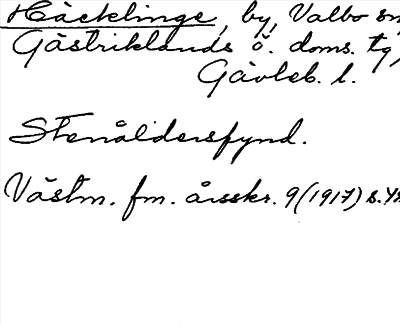 Häcklinge, by, Valbo sn
Gästriklands ö. doms. tg,
Gävleb. l.
Stenåldersfynd.
Västm. fm. årsskr. 9 (1917) s.